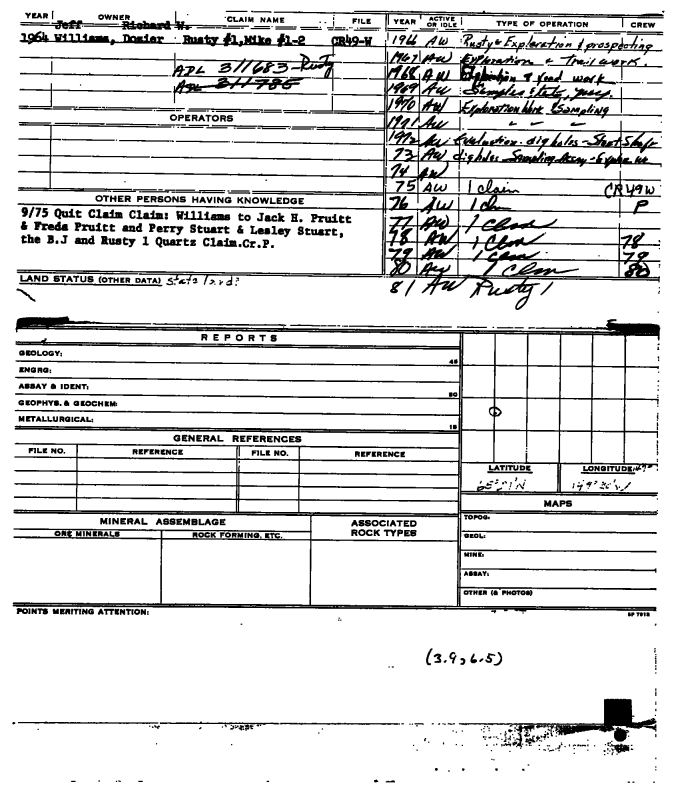 YEAR OWNER CLAIM NAME FILE
Jeff Richard W.
1964 Williams, Dozier Rusty #1,Mike #1-2 CR49-W
ADL 311683 Rusty
ADL 311785
OPERATORS
OTHER PERSONS HAVING KNOWLEDGE
9/75 Quit Claim Claim: Williams to Jack H. Pruitt
& Freda Pruitt and Perry Stuart & Lesley Stuart,
the B.J and Rusty 1 Quartz Claim.Cr.P.
LAND STATUS (OTHER DATA) State land?
YEAR ACTIVE OR IDLE TYPE OF OPERATION CREW
1966 AW Rusty Exploration & prospecting
1967 AW Exploration & Trail work.
1968 AW & road work
1969 AW Samples State
1970 AW Exploration Work & Sampling
1971 AW " " "
1972 AW Evaluation - dig holes - Start Shaft
73 AW dig holes - Sampling Assay -
74 AW
75 AW 1 claim CR49W
76 AW 1 P
77 AW 1 Claim
78 AW 1 Claim 78
79 AW 1 Claim 79
80 AW 1 Claim 80
81 AW Rusty 1
REPORTS
GEOLOGY:
45
ENGRG:
ASSAY & IDENT:
30
GEOPHYS. & GEOCHEM:
METALLURGICAL:
15
GENERAL REFERENCES
FILE NO. REFERENCE FILE NO. REFERENCE
LATITUDE LONGITUDE
MAPS
TOPOG:
GEOL:
MINE:
ASSAY:
OTHER (& PHOTOS)
MINERAL ASSEMBLAGE ASSOCIATED ROCK TYPES
ORE MINERALS ROCK FORMING, ETC.
POINTS MERITING ATTENTION:
(3.9,6.5)